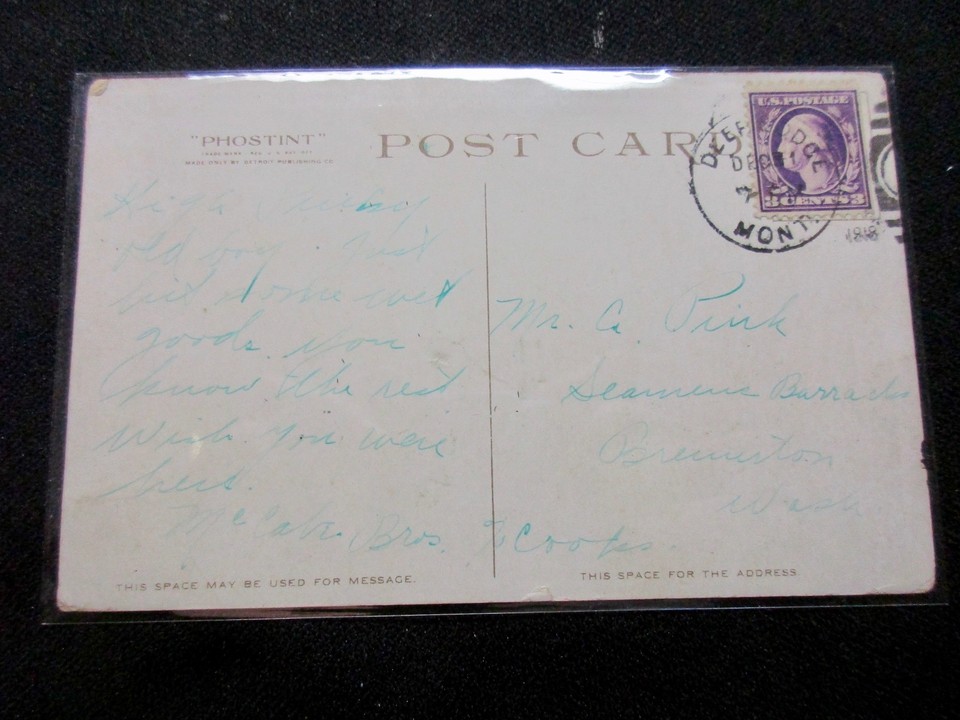 "PHOSTINT"
MADE ONLY BY DETROIT PUBLISHING CO.
POST CARD
U.S. POSTAGE
3 CENTS 3
DEER LODGE
DEC
MONT.
1918
old boy Just
hit some wet
goods you
know the rest
Wish you were
here.
Mc Cabe Bros. & Cooks.
Mr. C. Pink
Seamens Barracks
Bremerton
Wash
THIS SPACE MAY BE USED FOR MESSAGE.
THIS SPACE FOR THE ADDRESS